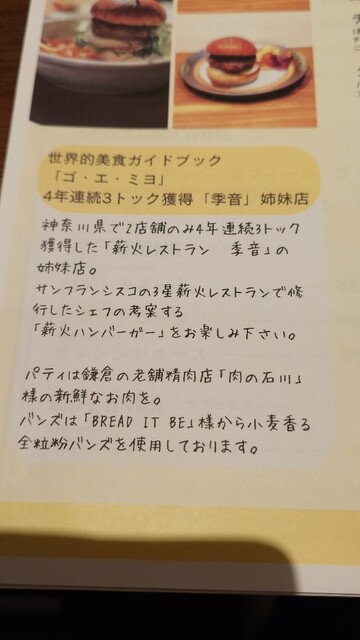 世界的美食ガイドブック
「ゴ・エ・ミヨ」
4年連続3トック獲得「季音」姉妹店
神奈川県で2店舗のみ4年連続3トック
獲得した「薪火レストラン 季音」の
姉妹店。
サンフランシスコの3星薪火レストランで修
行したシェフの考案する
「薪火ハンバーガー」をお楽しみ下さい。
パティは鎌倉の老舗精肉店「肉の石川」
様の新鮮なお肉を。
バンズは「BREAD IT BE」様から小麦香る
全粒粉バンズを使用しております。